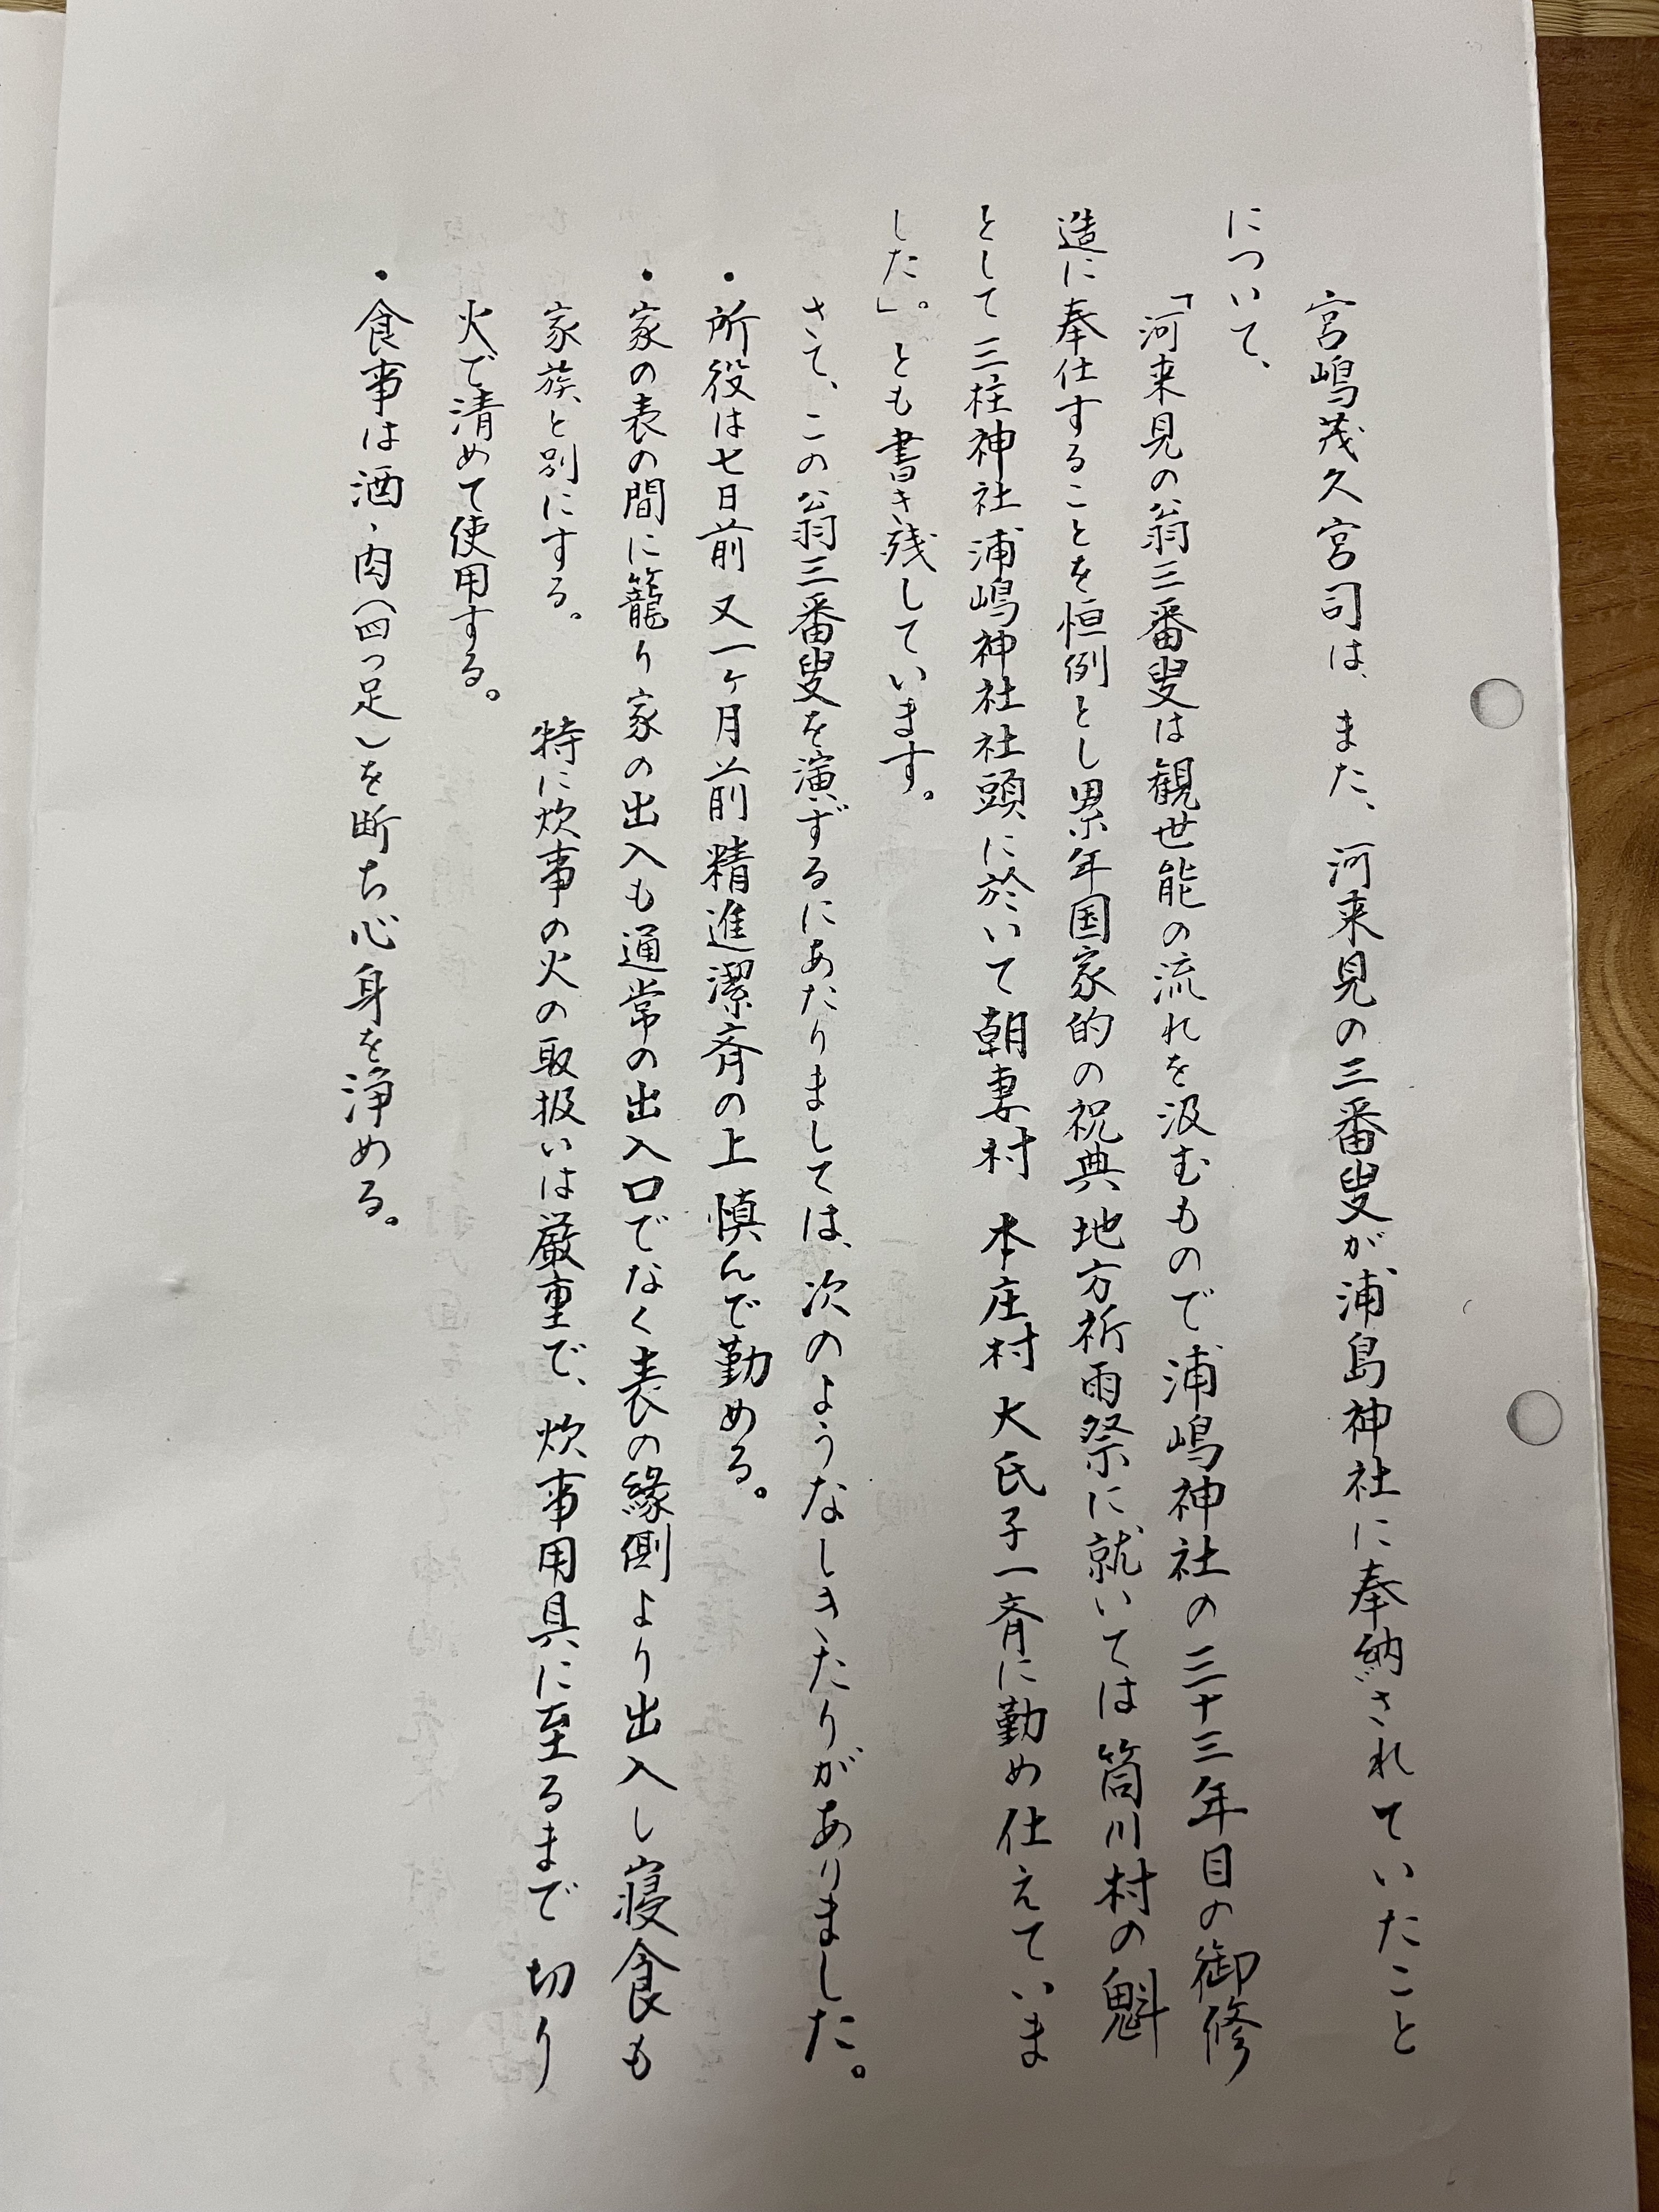 宮嶋茂久宮司は、また、河来見の三番叟が浦島神社に奉納されていたこと
について、
「河来見の翁三番叟は観世能の流れを汲むもので浦嶋神社の三十三年目の御修
造に奉仕することを恒例とし累年国家的の祝典地方祈雨祭に就いては筒川村の魁
として三柱神社浦嶋神社社頭に於いて朝妻村 本庄村大氏子一斉に勤め仕えていま
した」。とも書き残しています。
さて、この翁三番叟を演ずるにあたりましては、次のようなしきたりがありました。
・所役は七日前又一ヶ月前精進潔斉の上慎んで勤める。
・家の表の間に籠り家の出入も通常の出入口でなく表の縁側より出入し寝食も
家族と別にする。 特に炊事の火の取扱いは厳重で、炊事用具に至るまで切り
火で清めて使用する。
・食事は酒、肉(四つ足)を断ち心身を浄める。